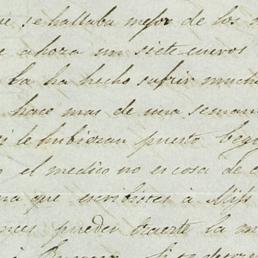 se hallaba mejor de los o
ahora un siete cueros
la ha hecho sufrir much
hace mas de una seman
le hubieran puesto
el medico no es cosa de c
que escribistes á Miss
pueden traerte la